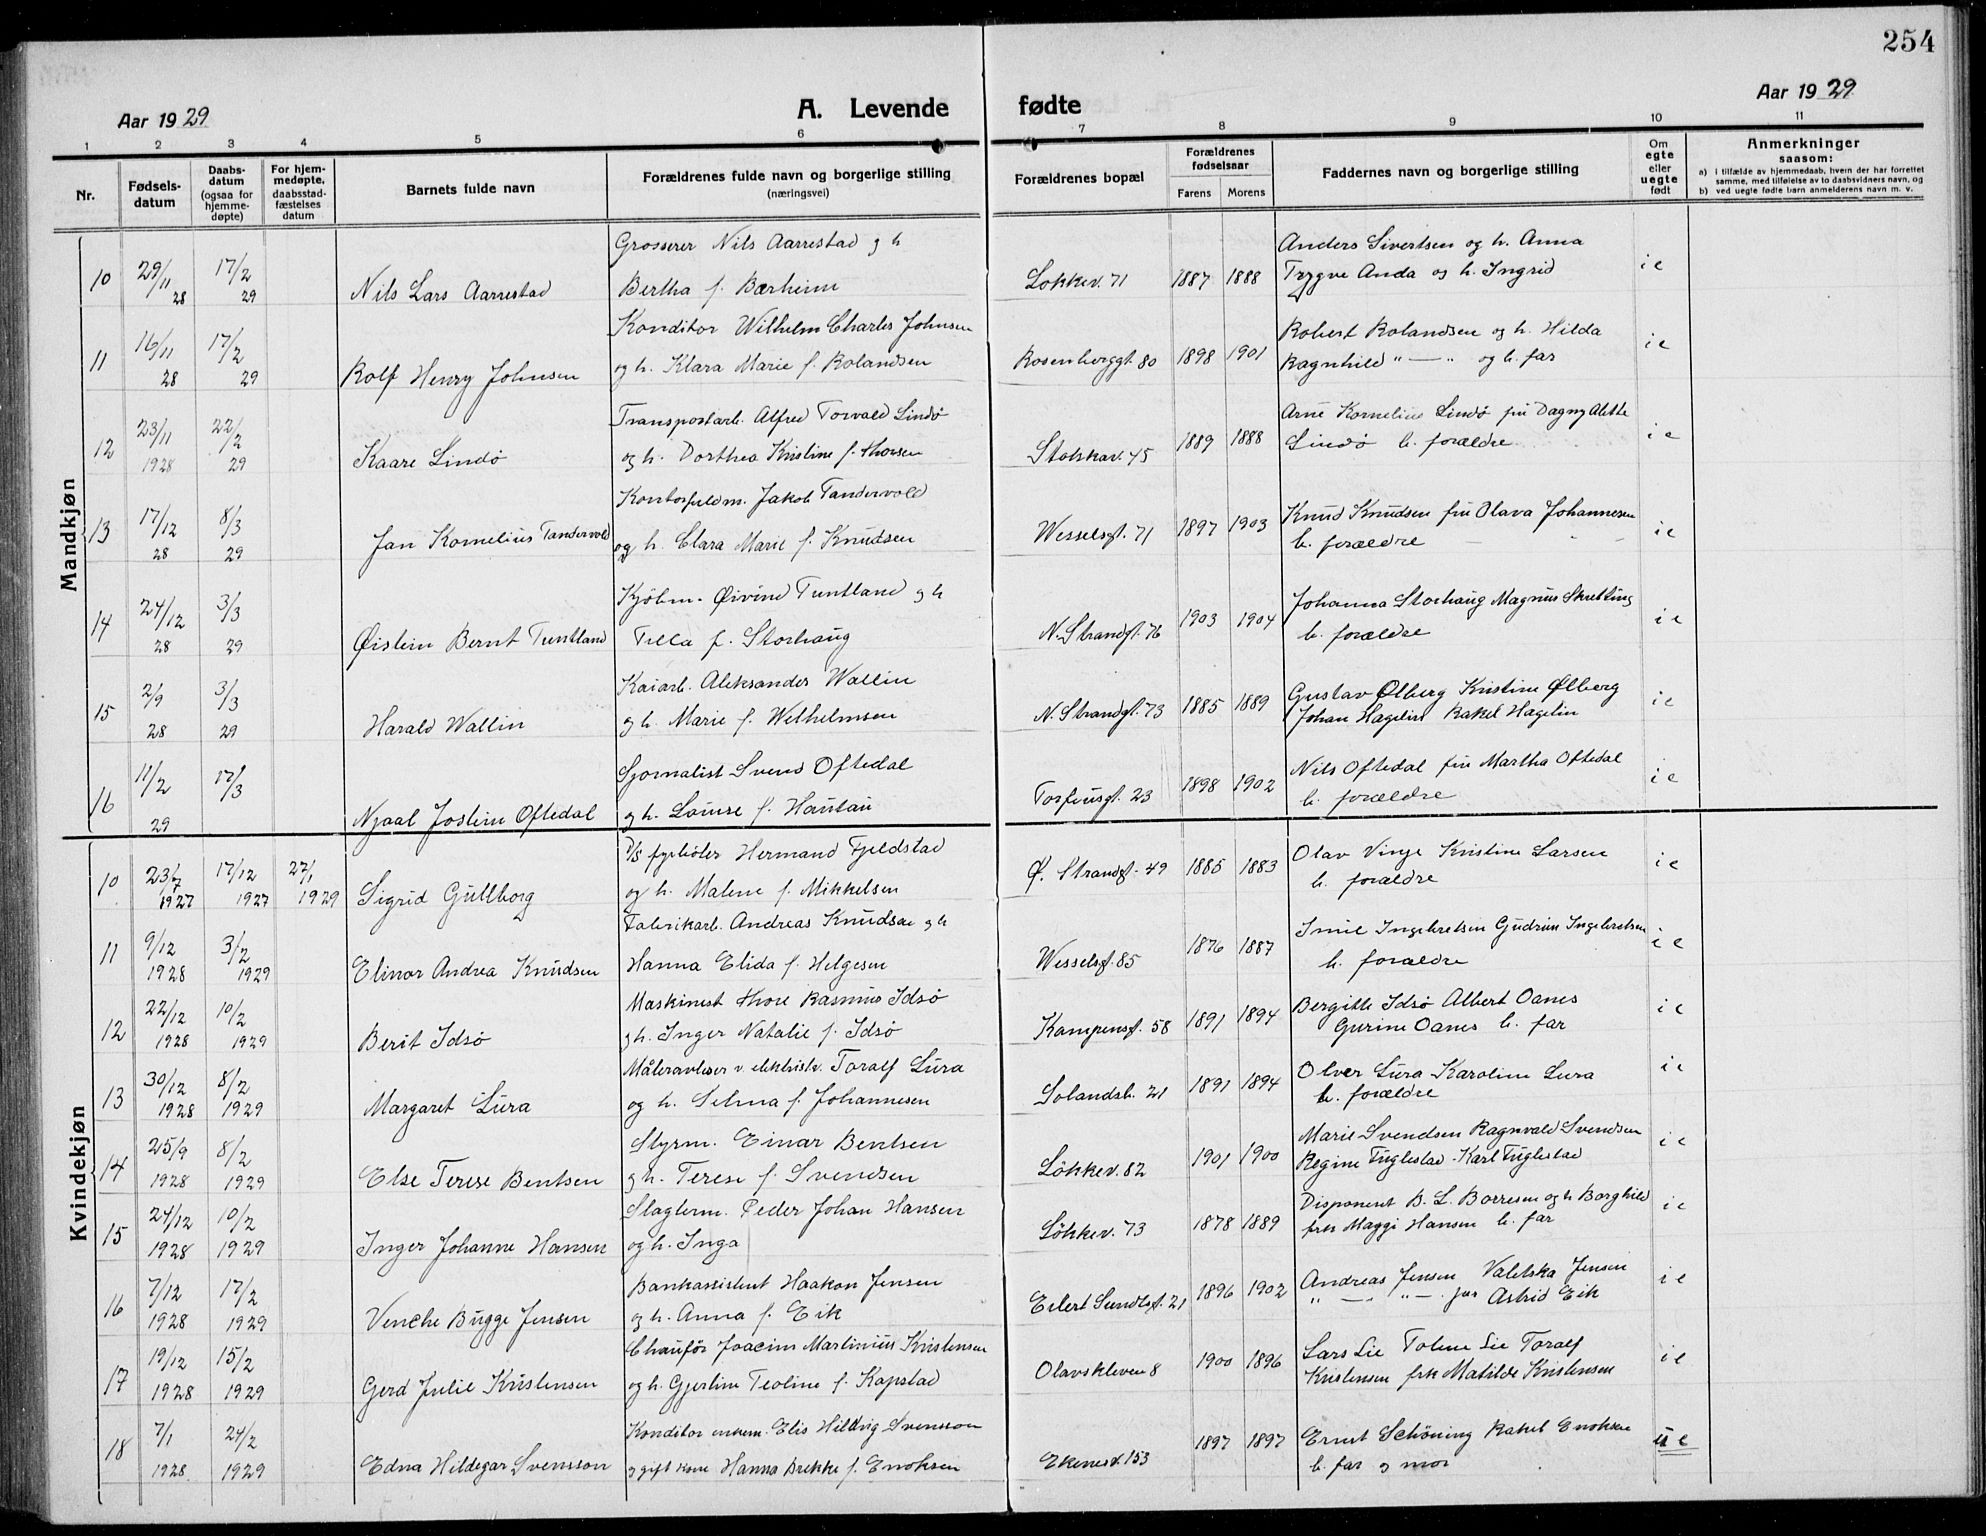 254
Aar 1929
A. Levende fødte
Aar 1929
1 2 3 4 5 6 7 8 9 10 11
Nr.
Fødsels-
datum
Daabs-
datum
(ogsaa for
hjemme-
døpte)
For hjem-
medøpte,
daabsstad-
fæstelses
datum
Barnets fulde navn
Forældrenes fulde navn og borgerlige stilling
(næringsvei)
Forældrenes bopæl
Forældrenes
fødselsaar
Farens Morens
Faddernes navn og borgerlige stilling
Om
egte
eller
uegte
født
Anmerkninger
saasom:
a) i tilfælde av hjemmedaab, hvem der har forrettet
samme, med tilføielse av to daabsvidners navn, og
b) ved uegte fødte barn anmelderens navn m. v.
Mandkjøn
Grosserer Nils Aarrestad og h
Anders Sivertsen og h. Anna
10 29/11 28 17/2 29 Nils Lars Aarrestad Bertha f. Bærheim Løkkev. 71 1887 1888 Trygve Anda og h. Ingrid i e
Konditor Wilhelm Charles Johnsen
Robert Rolandsen og h. Hilda
11 16/11 28 17/2 29 Rolf Henry Johnsen og h. Klara Marie f. Rolandsen Rosenberggt. 80 1898 1901 Ragnhild " — " og b. far i e
Transportarb. Alfred Torvald Lindø
Arne Kornelius Lindø fru Dagny Alette
12 23/11 1928 22/2 29 Kaare Lindø og h. Dorthea Kristine f. Thorsen Stokkav. 45 1889 1888 Lindø b. forældre i e
Kontorfuldm. Jakob Tandervold
Knud Knudsen fru Olava Johannesen
13 17/12 28 8/3 29 Jan Kornelius Tandervold og h. Clara Marie f. Knudsen Wesselsgt. 71 1897 1903 b. forældre i e
Kjøbm. Øivind Tuntland og h
Johanna Storhaug Magnus Skretting
14 24/12 28 3/3 29 Øistein Bernt Tuntland Tilla f. Storhaug N. Strandgt. 76 1903 1904 b. forældre i e
Kaiarb. Aleksander Wallin
Gustav Ølberg Kristine Ølberg
15 2/9 28 3/3 29 Harald Wallin og h. Marie f. Wilhelmsen N. Strandgt. 73 1885 1889 Johan Hagelin Rakel Hagelin i e
Sjornalist Svend Oftedal
Nils Oftedal fru Martha Oftedal
16 11/2 29 17/3 Njaal Jostein Oftedal og h. Louise f. Hautau Torfinsgt. 23 1898 1902 b. forældre i e
Kvindekjøn
D/S fyrbøter Hermand Fjeldstad
Olav Vinje Kristine Larsen
10 23/7 1927 17/12 1927 27/1 1929 Sigrid Gullborg og h. Malene f. Mikkelsen Ø. Strandgt. 49 1885 1883 b. forældre i e
Fabrikarb. Andreas Knudsen og h
Imil Ingebretsen Gudrun Ingebretsen
11 9/12 1928 3/2 1929 Elinor Andrea Knudsen Hanna Elida f. Helgesen Wesselsgt. 85 1876 1887 b. forældre i e
Maskinist Thore Rasmus Idsø
Bergitte Idsø Albert Oanes
12 22/12 1928 10/2 1929 Berit Idsø og h. Inger Natalie f. Idsø Kampensgt. 58 1891 1894 Gurine Oanes b. far i e
Måleravleser v. elektrisk. Toralf Lura
Olver Lura Karoline Lura
13 30/12 1928 8/2 1929 Margaret Lura og h. Selma f. Johannesen Solandsb. 21 1891 1894 b. forældre i e
Styrm. Einar Bentsen
Marie Svendsen Ragnvald Svendsen
14 25/9 1928 8/2 1929 Else Terese Bentsen og h. Terese f. Svendsen Løkkev. 82 1901 1900 Regine Fuglestad Karl Fuglestad i e
Slagterm. Peder Johan Hansen
Disponent B. L. Borresen og h Borghild
15 24/12 1928 10/2 1929 Inger Johanne Hansen og h. Inga Løkkev. 73 1878 1889 frk Maggi Hansen b. far i e
Bankassistent Haakon Jensen
Andreas Jensen Valeska Jensen
16 7/12 1928 17/2 1929 Venche Bugge Jensen og h. Anna f. Eik Eilert Sundtsgt. 21 1896 1902 " — " — " Astrid Eik i e
Chauför Joacim Martinius Kristensen
Lars Lie Tolene Lie Toralf
17 19/12 1928 15/2 1929 Gerd Julie Kristensen og h. Gjertine Teoline f. Kapstad Olavskleven 8 1900 1896 Kristensen frk Matilde Kristensen i e
Konditor enkem. Elis Hildvig Svensson
Ernst Schöning Rakel Enoksen
18 7/1 1928 24/2 1929 Edna Hildegar Svensson og gift kone Hanna Brekke f. Enoksen Ekenesv. 153 1897 1897 b. far og mor u e